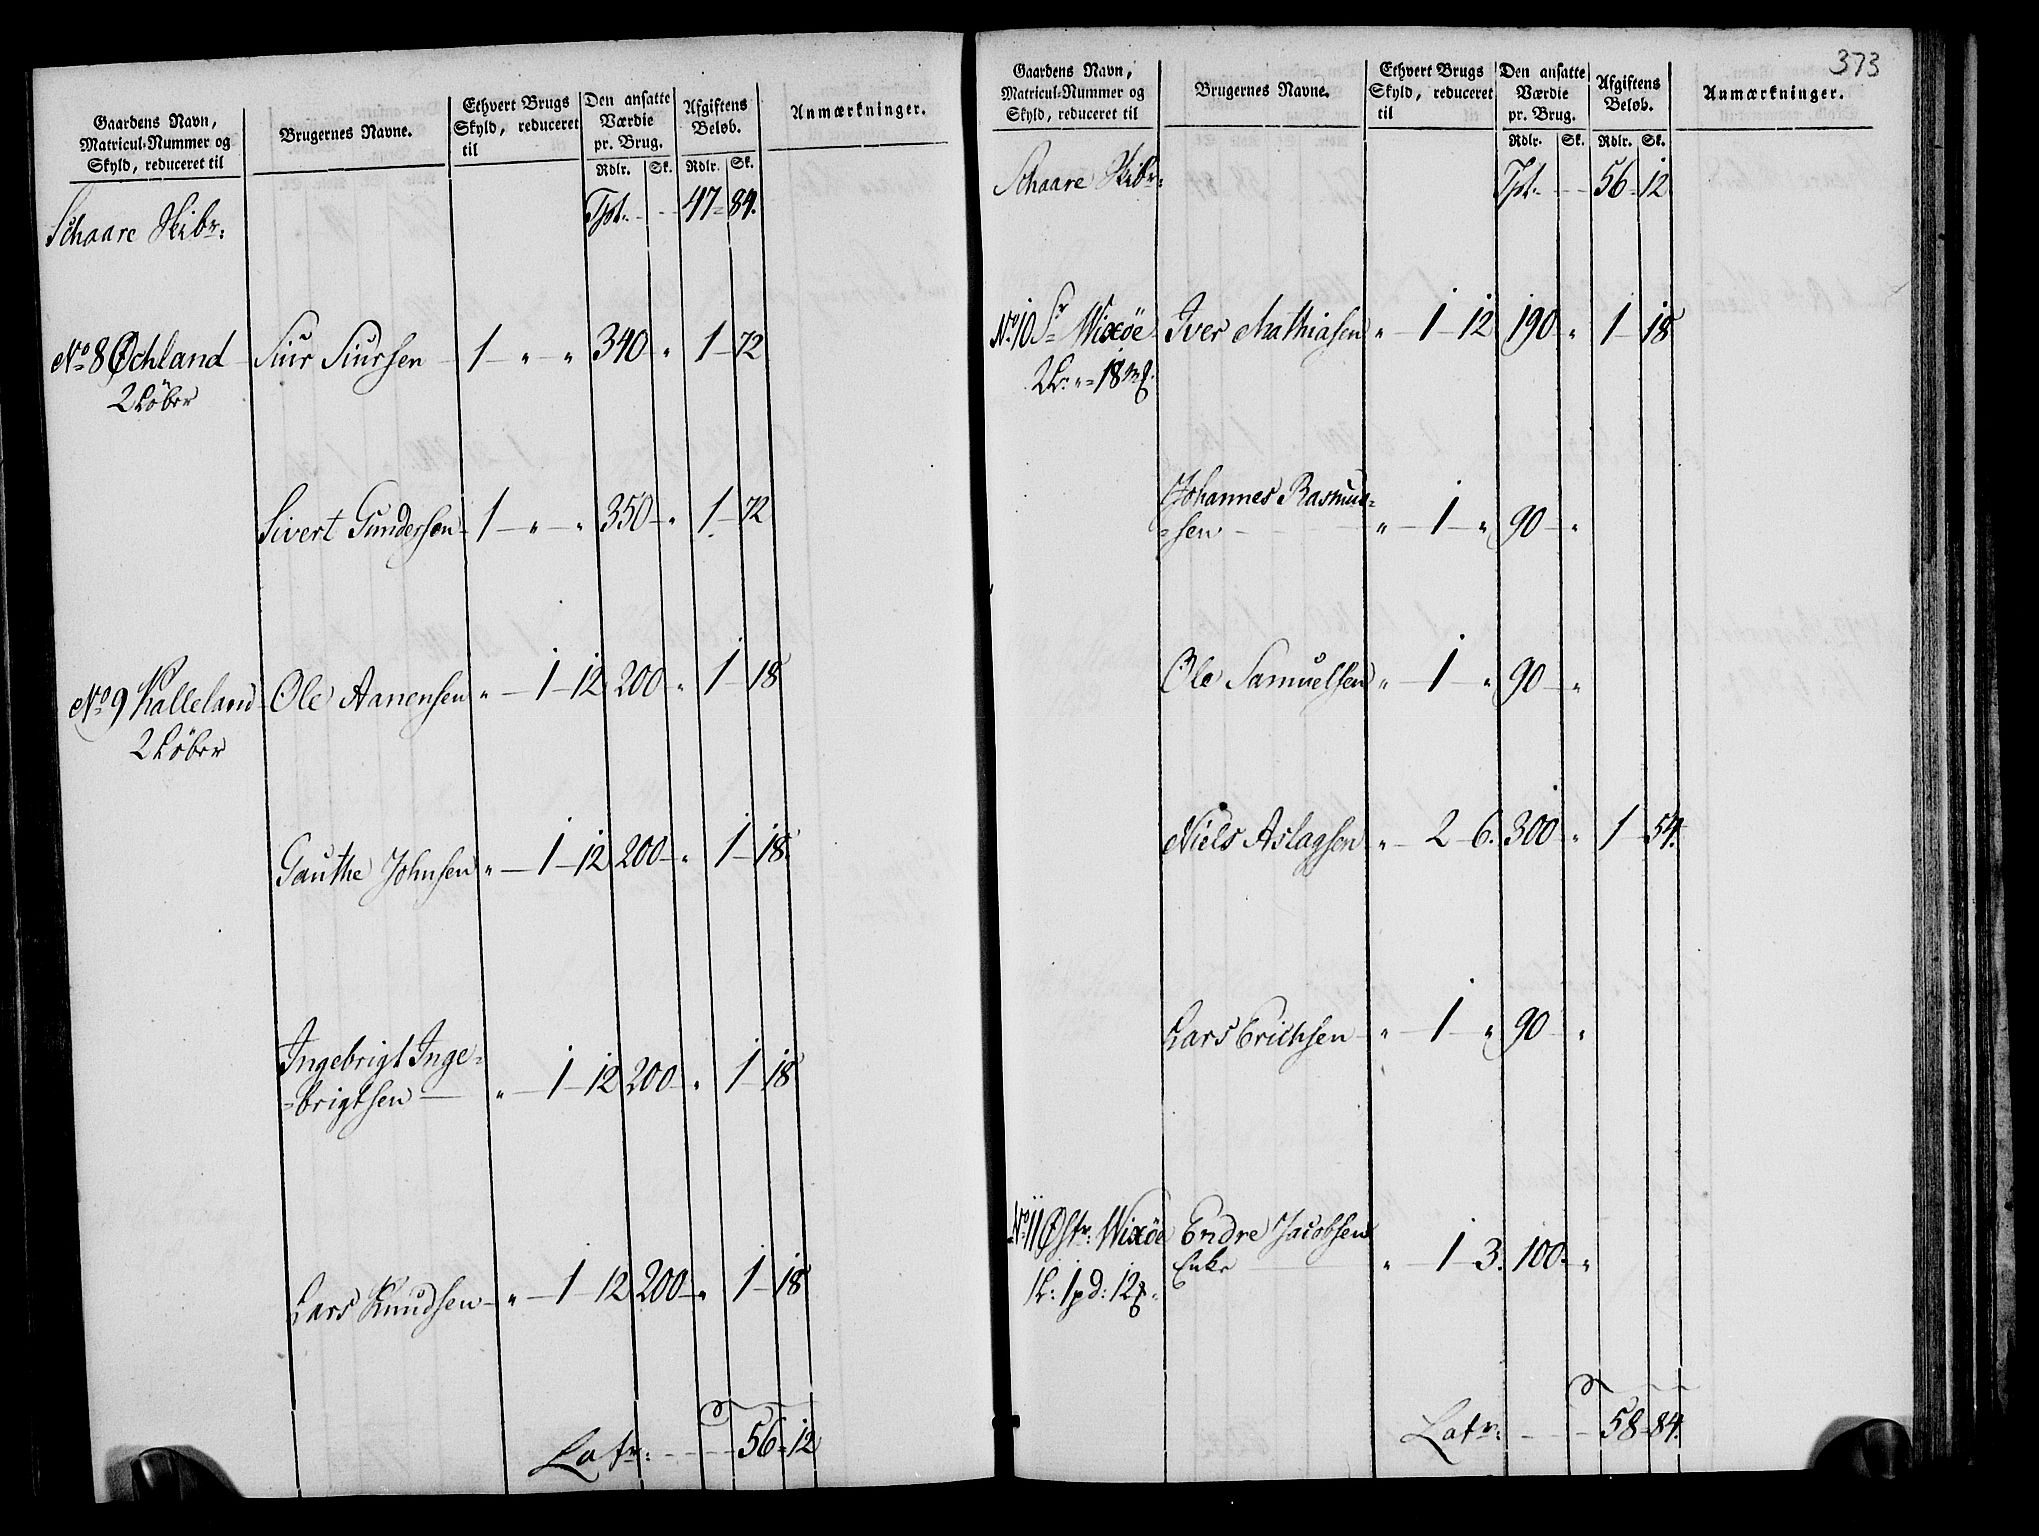 Gaardens Navn, Matricul-Nummer og Skyld, reduceret til | Brugernes Navne. | Ethvert Brugs Skyld, reduceret til | Den ansatte Værdie pr. Brug. Rdlr. Sk. | Afgiftens Beløb. Rdlr. Sk. | Anmærkninger.
Schaare Skibr: Tpt. - - 47 = 84.
No 8 Øchland Siur Siursen 1 - " - " 340 " 1 - 72
2 Løber
Sivert Gundersen 1 - " - " 350 - " 1 - 72
No 9 Kalleland Ole Aanensen " - 1 - 12 200 " 1 - 18
2 Løber
Gauthe Johnsen " - 1 - 12 200 - " 1 - 18.
Ingebrigt Inge=
=brigtsen " - 1 - 12 200 - " 1 - 18
Lars Knudsen " - 1 - 12 200 - " 1 - 18
Latr: - - - 56 = 12
373
Gaardens Navn, Matricul-Nummer og Skyld, reduceret til | Brugernes Navne. | Ethvert Brugs Skyld, reduceret til | Den ansatte Værdie pr. Brug. Rdlr. Sk. | Afgiftens Beløb. Rdlr. Sk. | Anmærkninger.
Schaare Skibr: Tpt. - - 56 - 12
No 10 Sr Wixøe Iver Mathiasen " - 1 - 12 190 " 1 - 18
2 L: " = 18 mg.
Johannes Rasmus=
=sen - " - 1 - " 90 - "
Ole Samuelsen " - 1 - " 90 - "
Niels Aslagsen " - 2 - 6. 300 " 1 - 54.
Lars Erichsen " - 1 - " 90 - "
No 11 Østr: Wixøe Endre Jacobsens
Enke " - 1 - 3. 100 - "
1 L: 1 pd: 12
Latr: - - - 58 = 84.